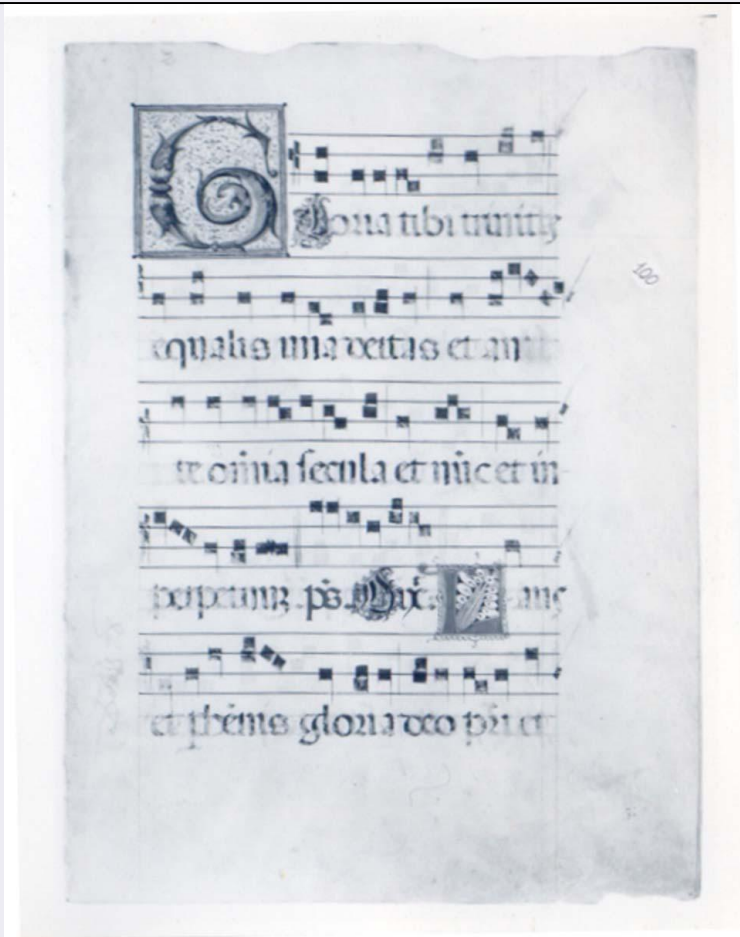 Gloria tibi trinitas
equalis una deitas et an
te omnia secula et nuc et in
perpetuum ps. Dix. Laus
et phenis gloria deo pri et
100